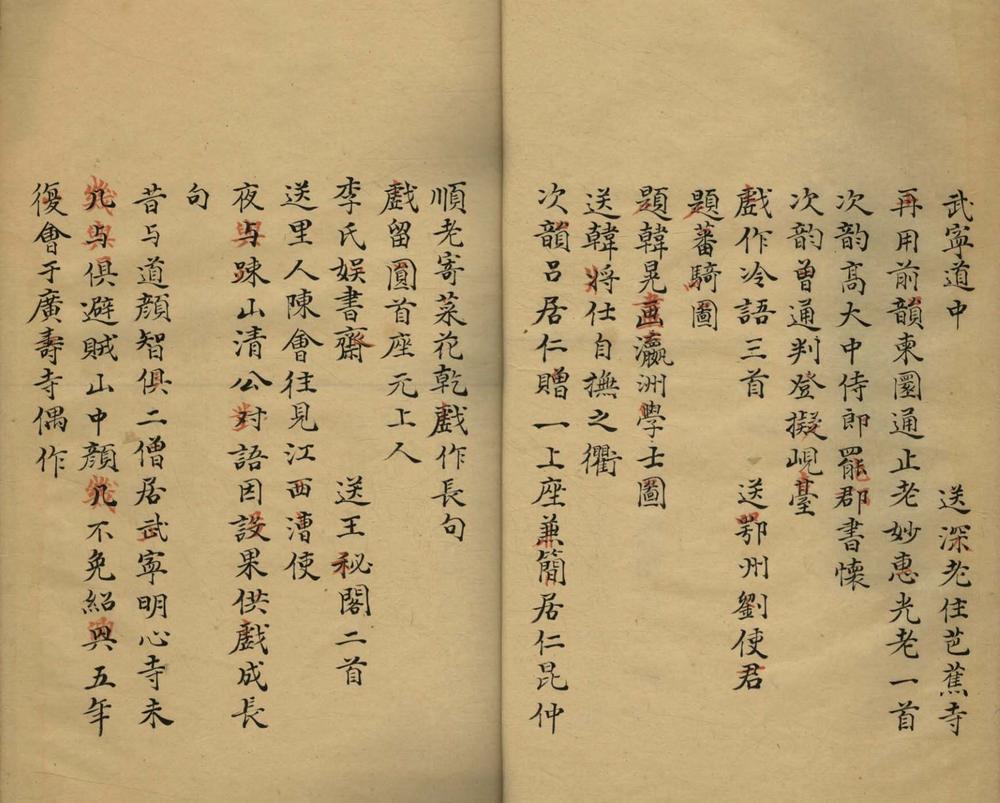 武寧道中　送深老住芭蕉寺
再用前韻柬圜通止老妙惠光老一首
次韵髙大中侍郎罷郡書懷
次韵曽通判登擬峴臺
戲作冷語三首　送鄂州劉使君
題蕃騎圖
題韓晃畫瀛洲學士圖
送韓將仕自撫之衢
次韻吕居仁贈一上座兼簡居仁昆仲
順老寄菜花乾戲作長句
戲留圓首座元上人
李氏娱書齋　送王秘閣二首
送里人陳會往見江西漕使
夜与踈山清公对語因設果供戲成長
句
昔与道顔智俱二僧居武寧明心寺未
几与俱避賊山中顔几不免紹興五年
復會于廣壽寺偶作